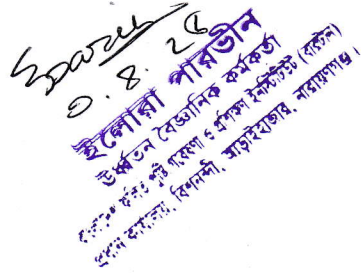 ০.৪.২৫
ইলোরা পারভীন
ঊর্ধ্বতন বৈজ্ঞানিক কর্মকর্তা
বাংলাদেশ ফলিত পুষ্টি গবেষণা ও প্রশিক্ষণ ইনস্টিটিউট (বারটান)
প্রধান কার্যালয়, বিশনন্দী, আড়াইহাজার, নারায়ণগঞ্জ।